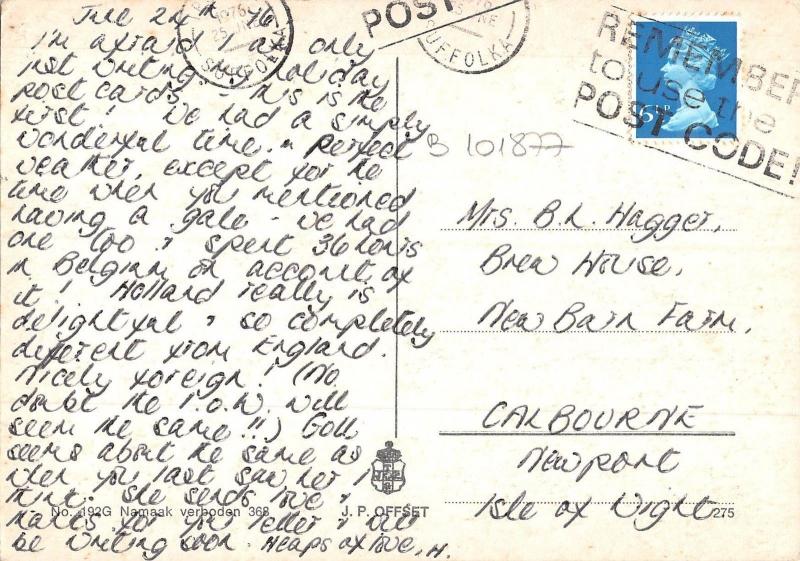 June 24th '76
I'm afraid I am only
just writing my holiday
post cards - this is the
first! We had a simply
wonderful time - perfect
weather, except for the
time when you mentioned
having a gale - we had
one too & spent 36 hours
in Belgium on account of
it! Holland really is
delightful & so completely
different from England.
Nicely foreign! (No
doubt the I.O.W. will
seem the same!!)
seems about the same as
when you last saw her I
think. She sends love &
thanks for your letter & will
be writing soon. Heaps of love, H.
No. 192G Namaak verboden 368
J. P. OFFSET
275
1976
SUFFOLK A
POST
SUFFOLK A
REMEMBER
to use the
POST CODE!
6½P
B 101877
Mrs. B.L. Hagget,
Brew House,
New Barn Farm,
CALBOURNE
Newport
Isle of Wight